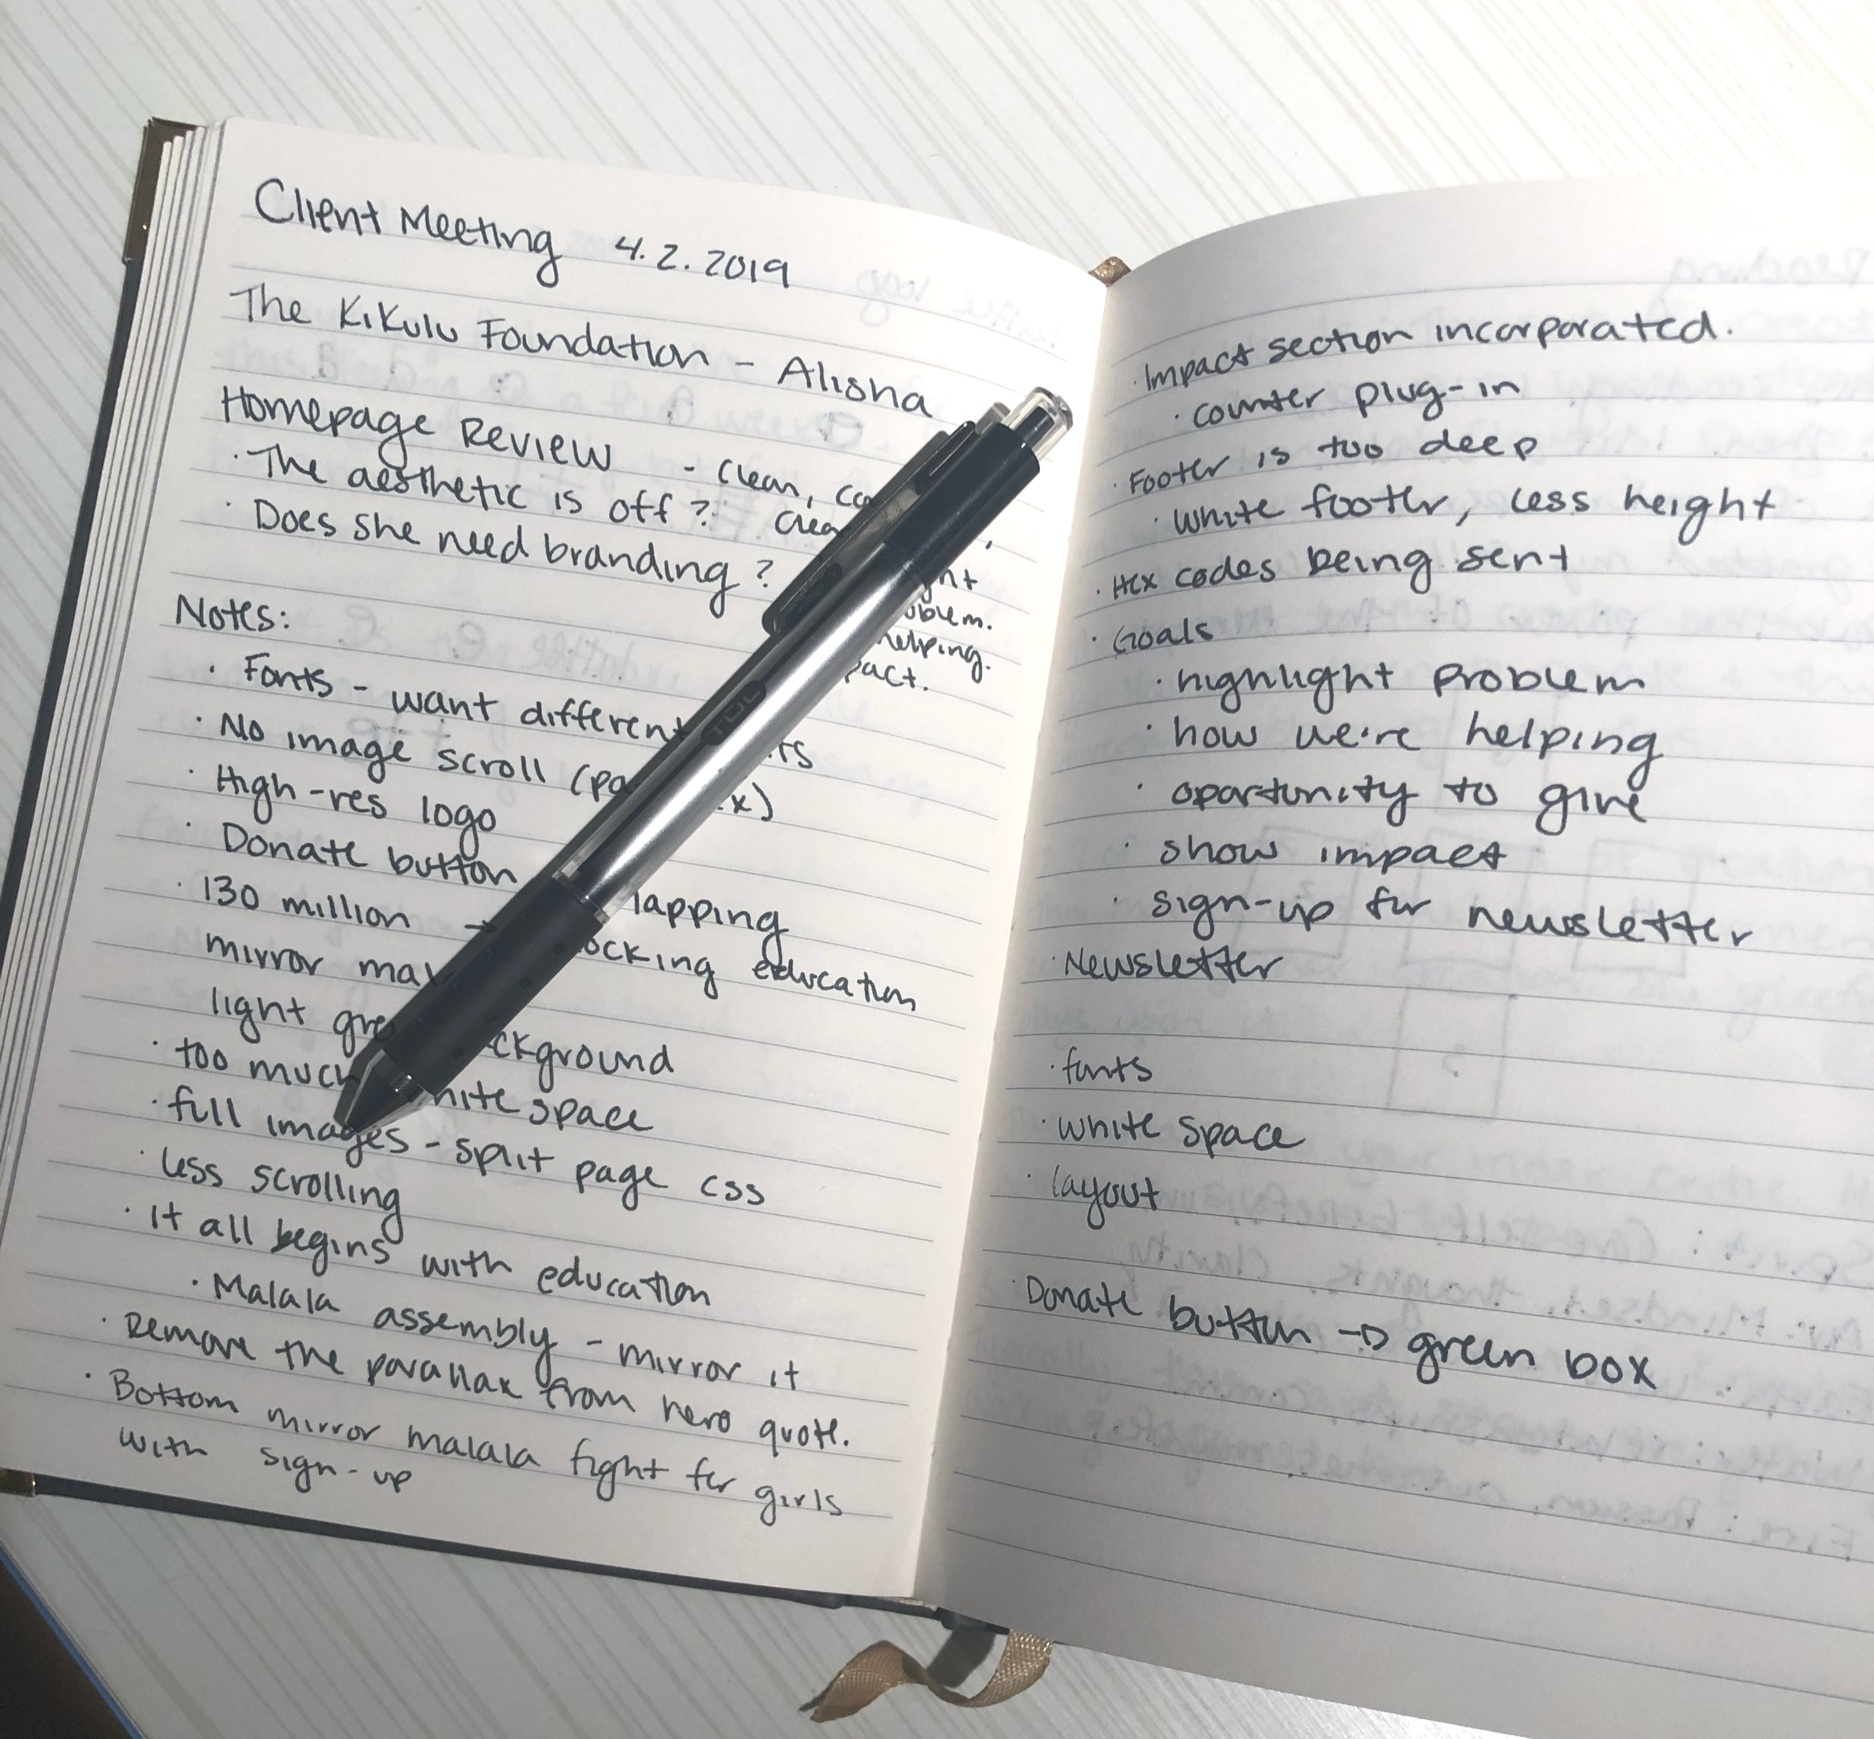 Client Meeting 4.2.2019
The Kikulu Foundation - Alisha
Homepage Review - clean,
· The aesthetic is off?
· Does she need branding?
helping.
Notes:
· Fonts - want different
· No image scroll
· High-res logo
· Donate button
· 130 million →
mirror education
light
· too much space
· full images - split page css
· less scrolling
· it all begins with education
· Malala assembly - mirror it
· Remove the parallax from hero quote.
· Bottom mirror malala fight for girls
with sign-up
TUL
· Impact section incorporated.
· counter plug-in
· Footer is too deep
· white footer, less height
· Hex codes being sent
· Goals
· highlight problem
· how we're helping
· oportunity to give
· show impact
· sign-up for newsletter
· Newsletter
· fonts
· white space
· layout
· Donate button → green box